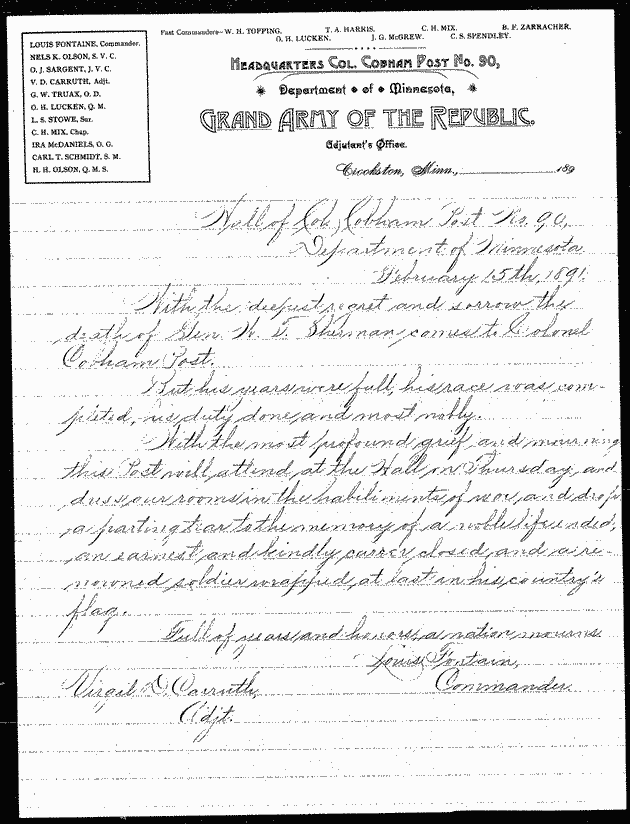 Past Commanders— W. H. TOPPING, T. A. HARRIS, C. H. MIX, B. F. ZARRACHER.
O. H. LUCKEN, J. G. McGREW, C. S. SPENDLEY.
LOUIS FONTAINE, Commander.
NELS K. OLSON, S. V. C.
O. J. SARGENT, J. V. C.
V. D. CARRUTH, Adjt.
G. W. TRUAX, O. D.
O. H. LUCKEN, Q. M.
L. S. STOWE, Sur.
C. H. MIX, Chap.
IRA McDANIELS, O. G.
CARL T. SCHMIDT, S. M.
H. H. OLSON, Q. M. S.
HEADQUARTERS COL. COBHAM POST NO. 90,
Department of Minnesota,
GRAND ARMY OF THE REPUBLIC.
Adjutant's Office.
Crookston, Minn., 189
Hall of Col, Cobham Post No. 90,
Department of Minnesota
February 15th, 1891.
With the deepest regret and sorrow the
death of Gen. W. T. Sherman comes to Colonel
Cobham Post.
But his years were full, his race was com-
pleted, his duty done, and most nobly.
With the most profound grief and mourning
this Post will, attend, at the Hall, on Thursday, and
dress our rooms in the habiliments of woe, and drop
a parting tear to the memory of a noble life ended,
an earnest and kindly career closed, and a re-
nowned soldier wrapped, at last in his country's
flag.
Full of years, and honors, a nation mourns.
Louis Fontain,
Commander.
Virgil D. Carruth,
Adjt.